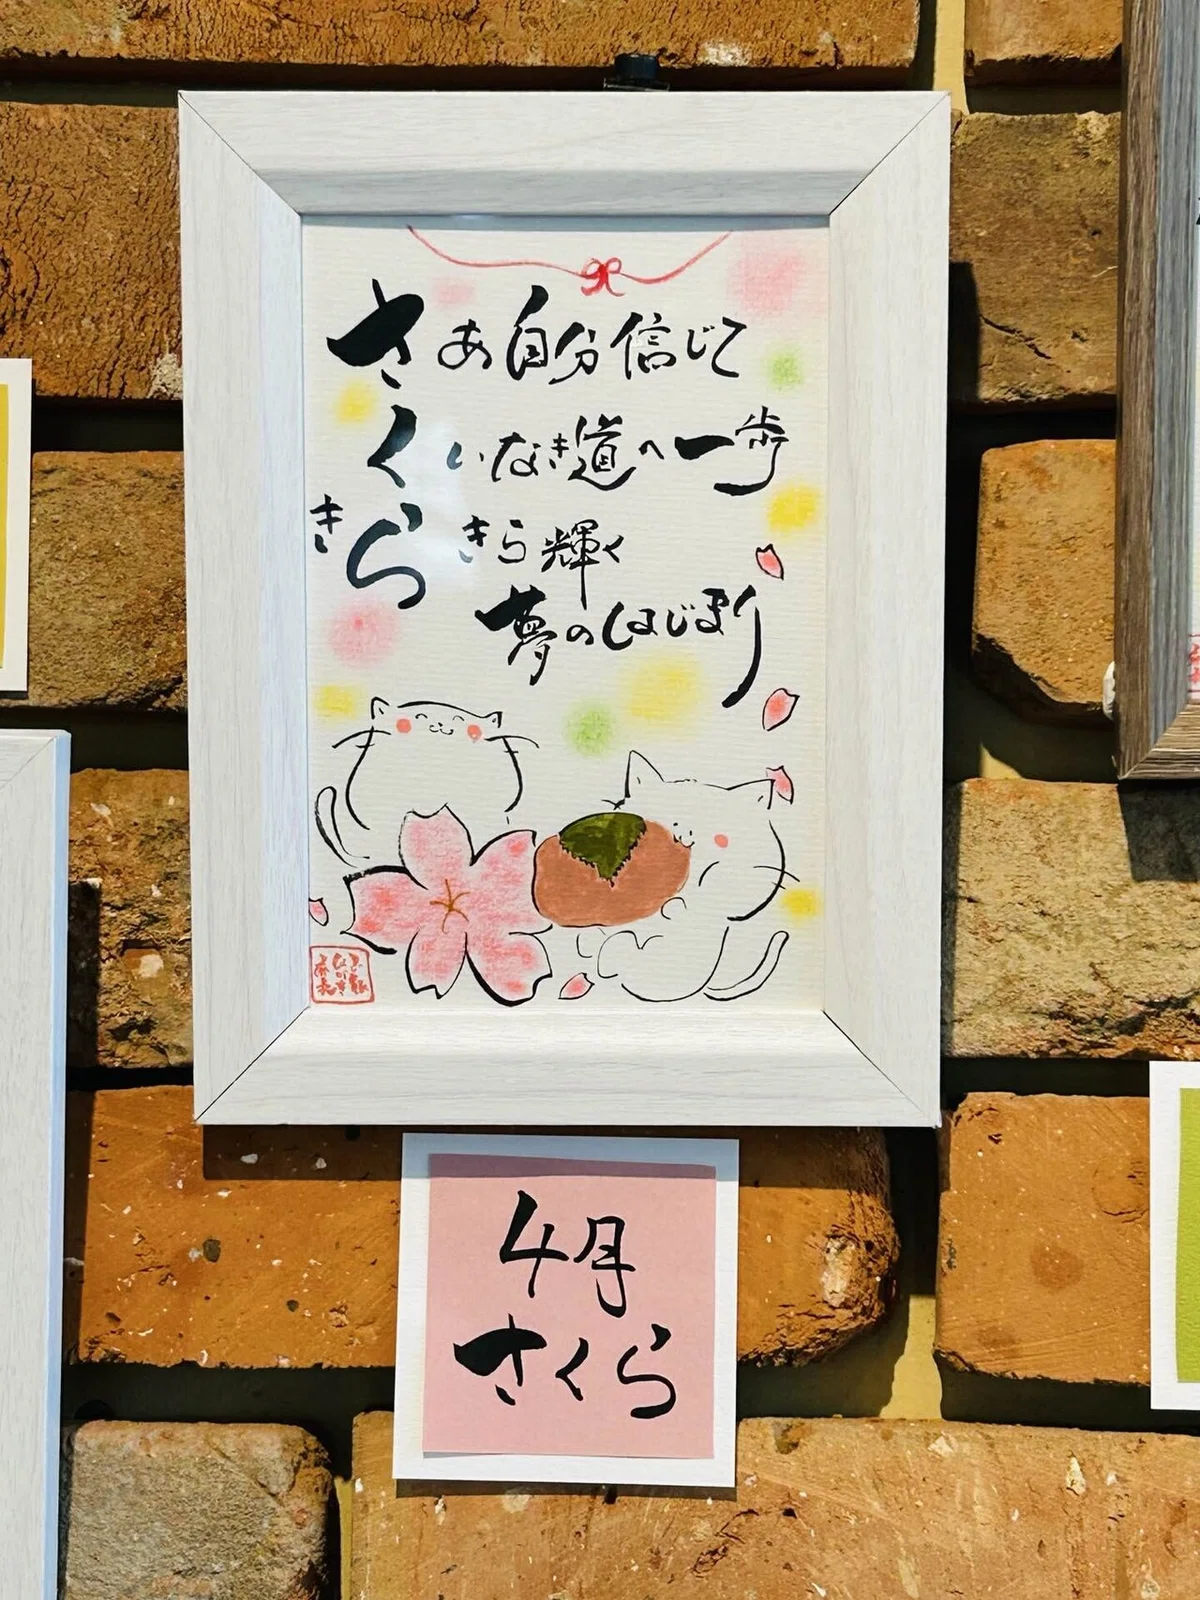 さあ自分信じて
くいなき道へ一歩
きらきら輝く
夢のはじまり
4月
さくら